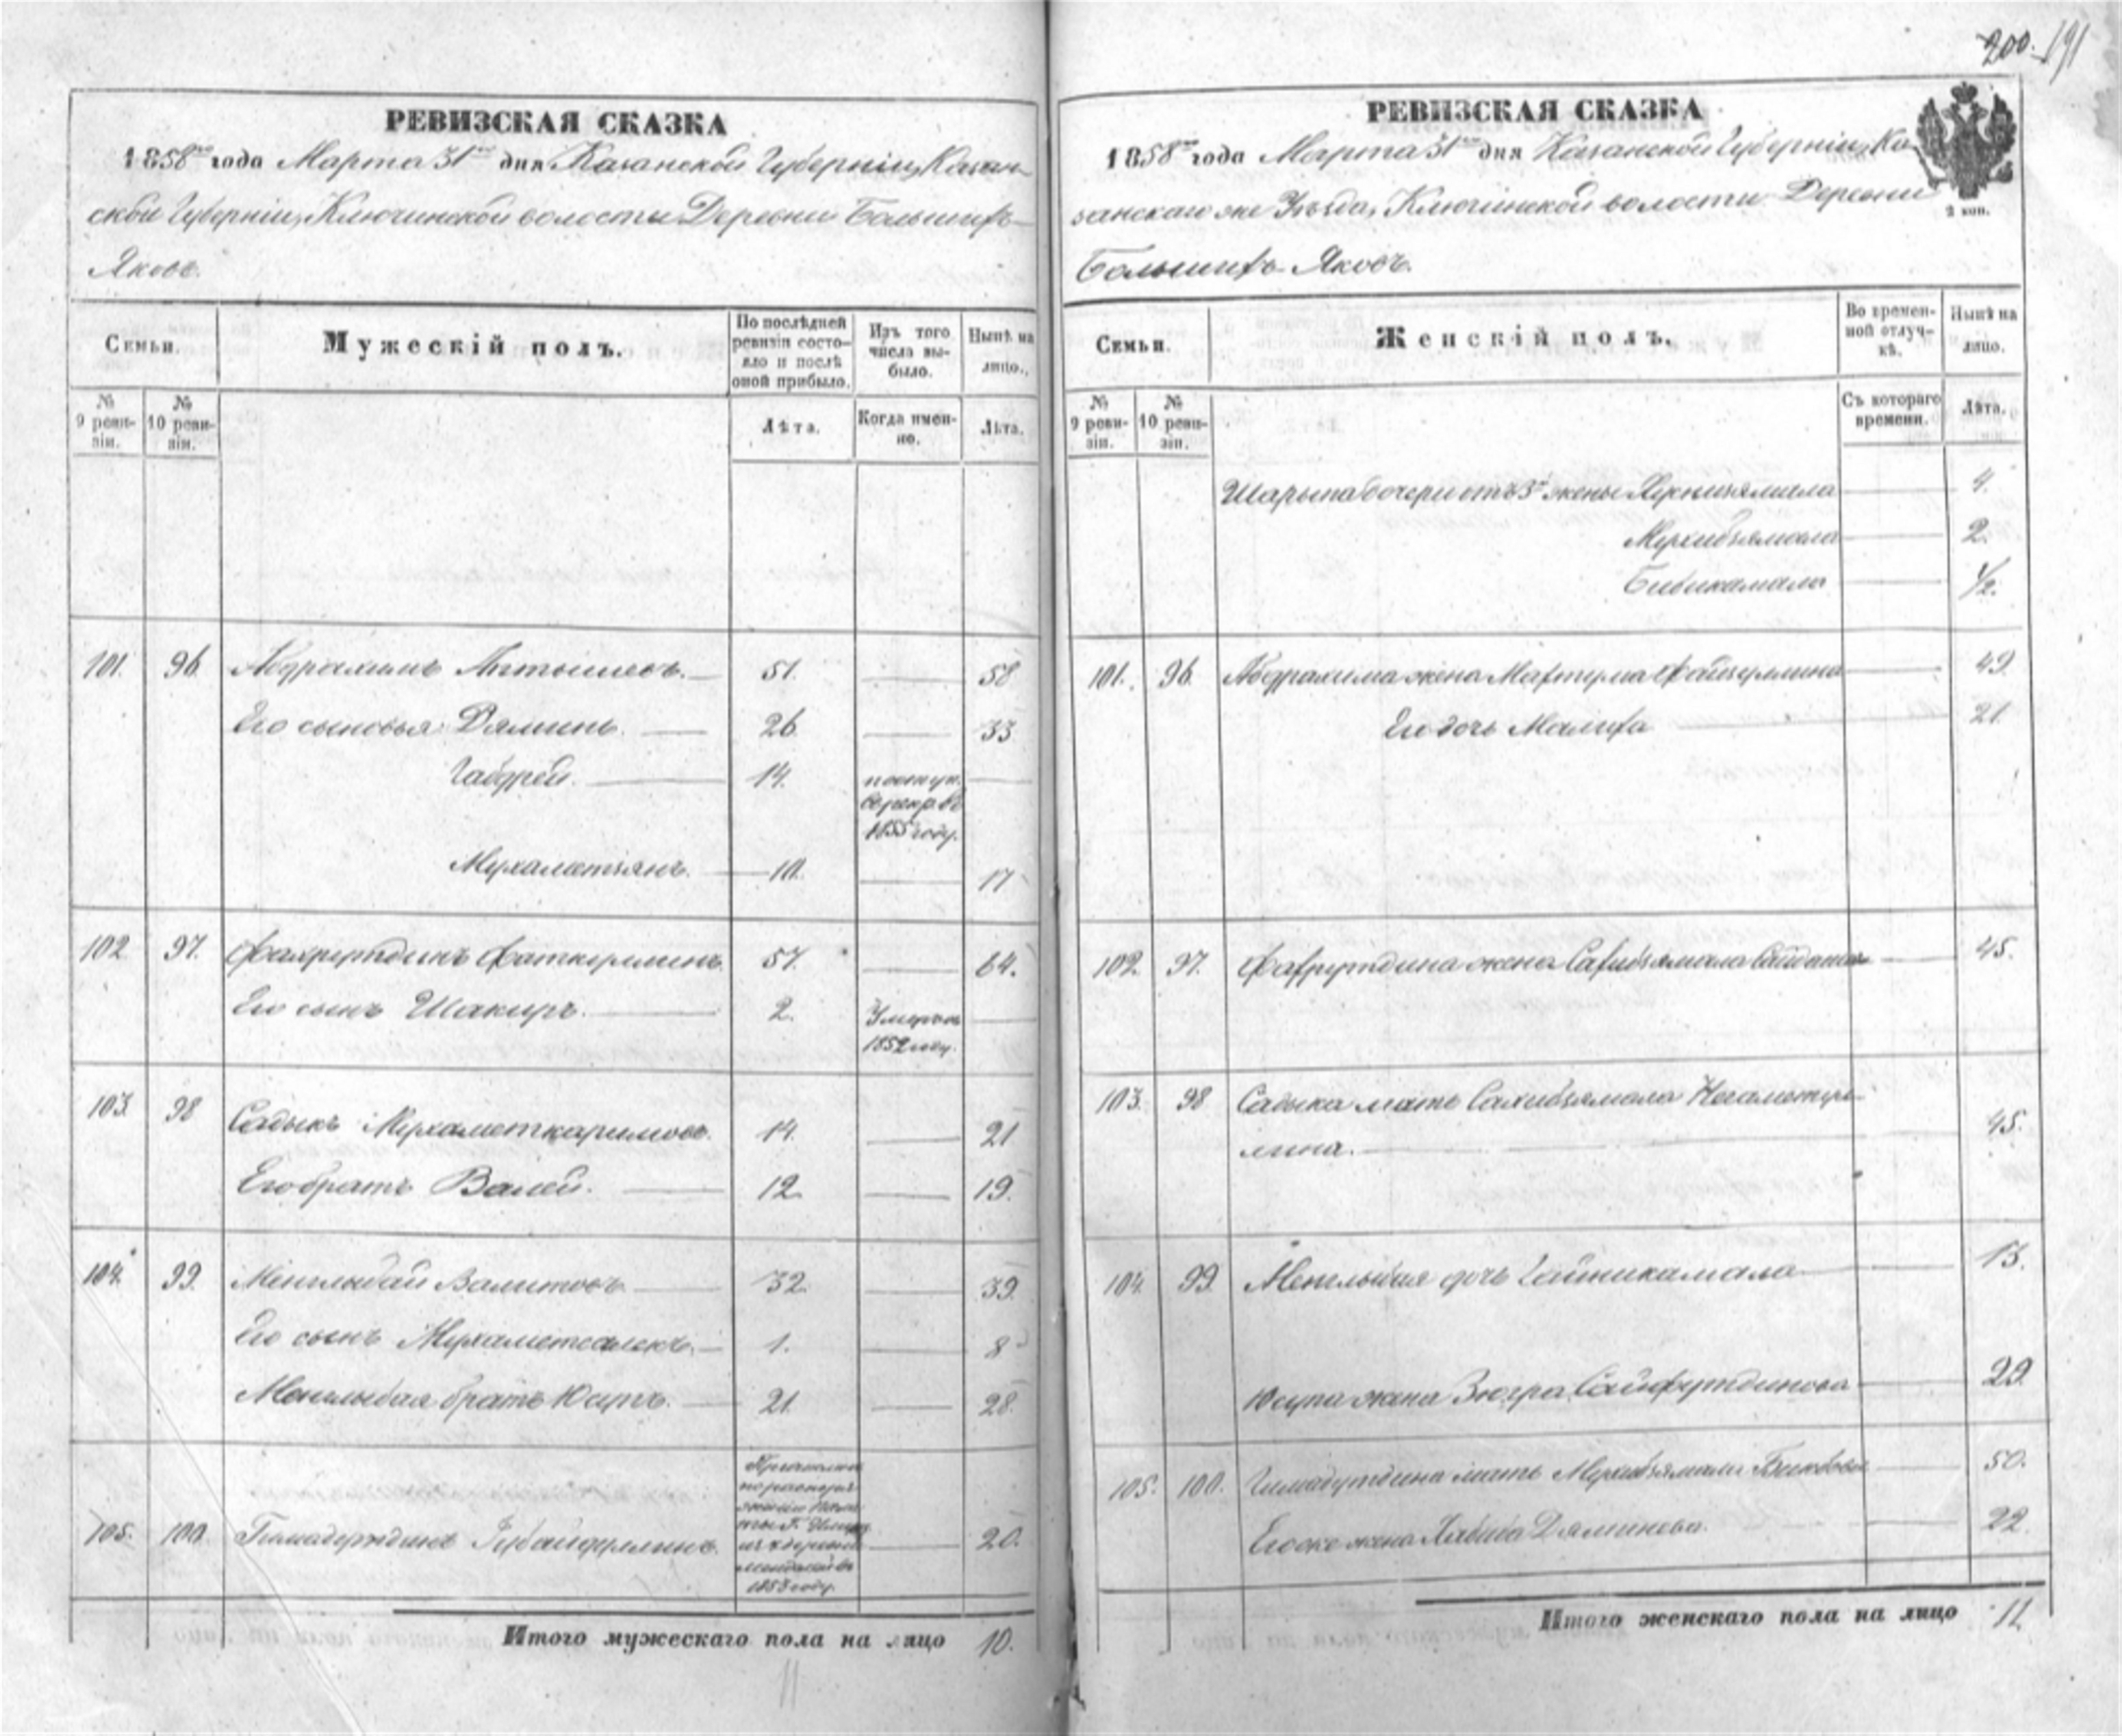 200. 191
РЕВИЗСКАЯ СКАЗКА
1858го года Марта 31го дня Казанской Губерніи, Казан-
ской Губерніи, Ключинской волости Деревни Большихъ
Яковъ.
Семьи.
Мужескій полъ.
По послѣдней ревизіи состо-яло и послѣ оной прибыло.
Изъ того числа вы-было.
Нынѣ на лицо.
№ 9 реви-зіи.
№ 10 реви-зіи.
Лѣта.
Когда имен-но.
Лѣта.
101. 96. Абдрахимъ 51. 58
Его сыновья Дяминъ. 26. 33
Габдрей. 14. поступ. въ 1855 году.
Мухаметзянъ. 10. 17
102. 97. Фахрутдинъ Фаткуллинъ. 57. 64.
Его сынъ Шакиръ. 2. Умеръ въ 1852 году.
103. 98 Садыкъ Мухаметкаримовъ. 14. 21
Его братъ Валей. 12. 19.
104. 99. Менглыбай Валитовъ 32. 39.
Его сынъ Мухаметсалехъ. 1. 8
Менглыбая братъ Юсупъ. 21. 28.
105. 100. Гимадутдинъ Губайдуллинъ. 1853 году. 20.
Итого мужескаго пола на лицо 10.
11
РЕВИЗСКАЯ СКАЗКА
2 коп.
1858го года Марта 31го дня Казанской Губерніи, Ка-
занскаго же Уѣзда, Ключинской волости Деревни
Большихъ Яковъ.
Семьи.
Женскій полъ.
Во времен-ной отлуч-кѣ.
Нынѣ на лицо.
№ 9 реви-зіи.
№ 10 реви-зіи.
Съ котораго времени.
Лѣта.
Шарыпа дочери отъ 3й жены 4.
Мухибзямала 2.
Бибикамала 1/2.
101. 96. Абдрахима жена Махтума Файзуллина 49.
Его дочь Малиха 21.
102. 97. Фахрутдина жена Сахибзямала 45.
103. 98 Садыка мать Сахибзямала Негаметул-
лина. 45.
104. 99. Менглыбая дочь Гайникамала 13.
Юсупа жена Зюгра Сайфутдинова 29.
105. 100. Гимадутдина мать Мухибзямала 50.
Его же жена Хабиба Дяминова. 22.
Итого женскаго пола на лицо 11.